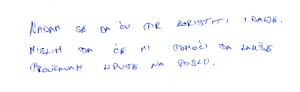 NADAM SE DA ĆU MR KORISTITI I DALJE.
MISLIM DA ĆE MI POMOĆI DA LAKŠE
PROUČAVAM UPUTE NA POSLU.